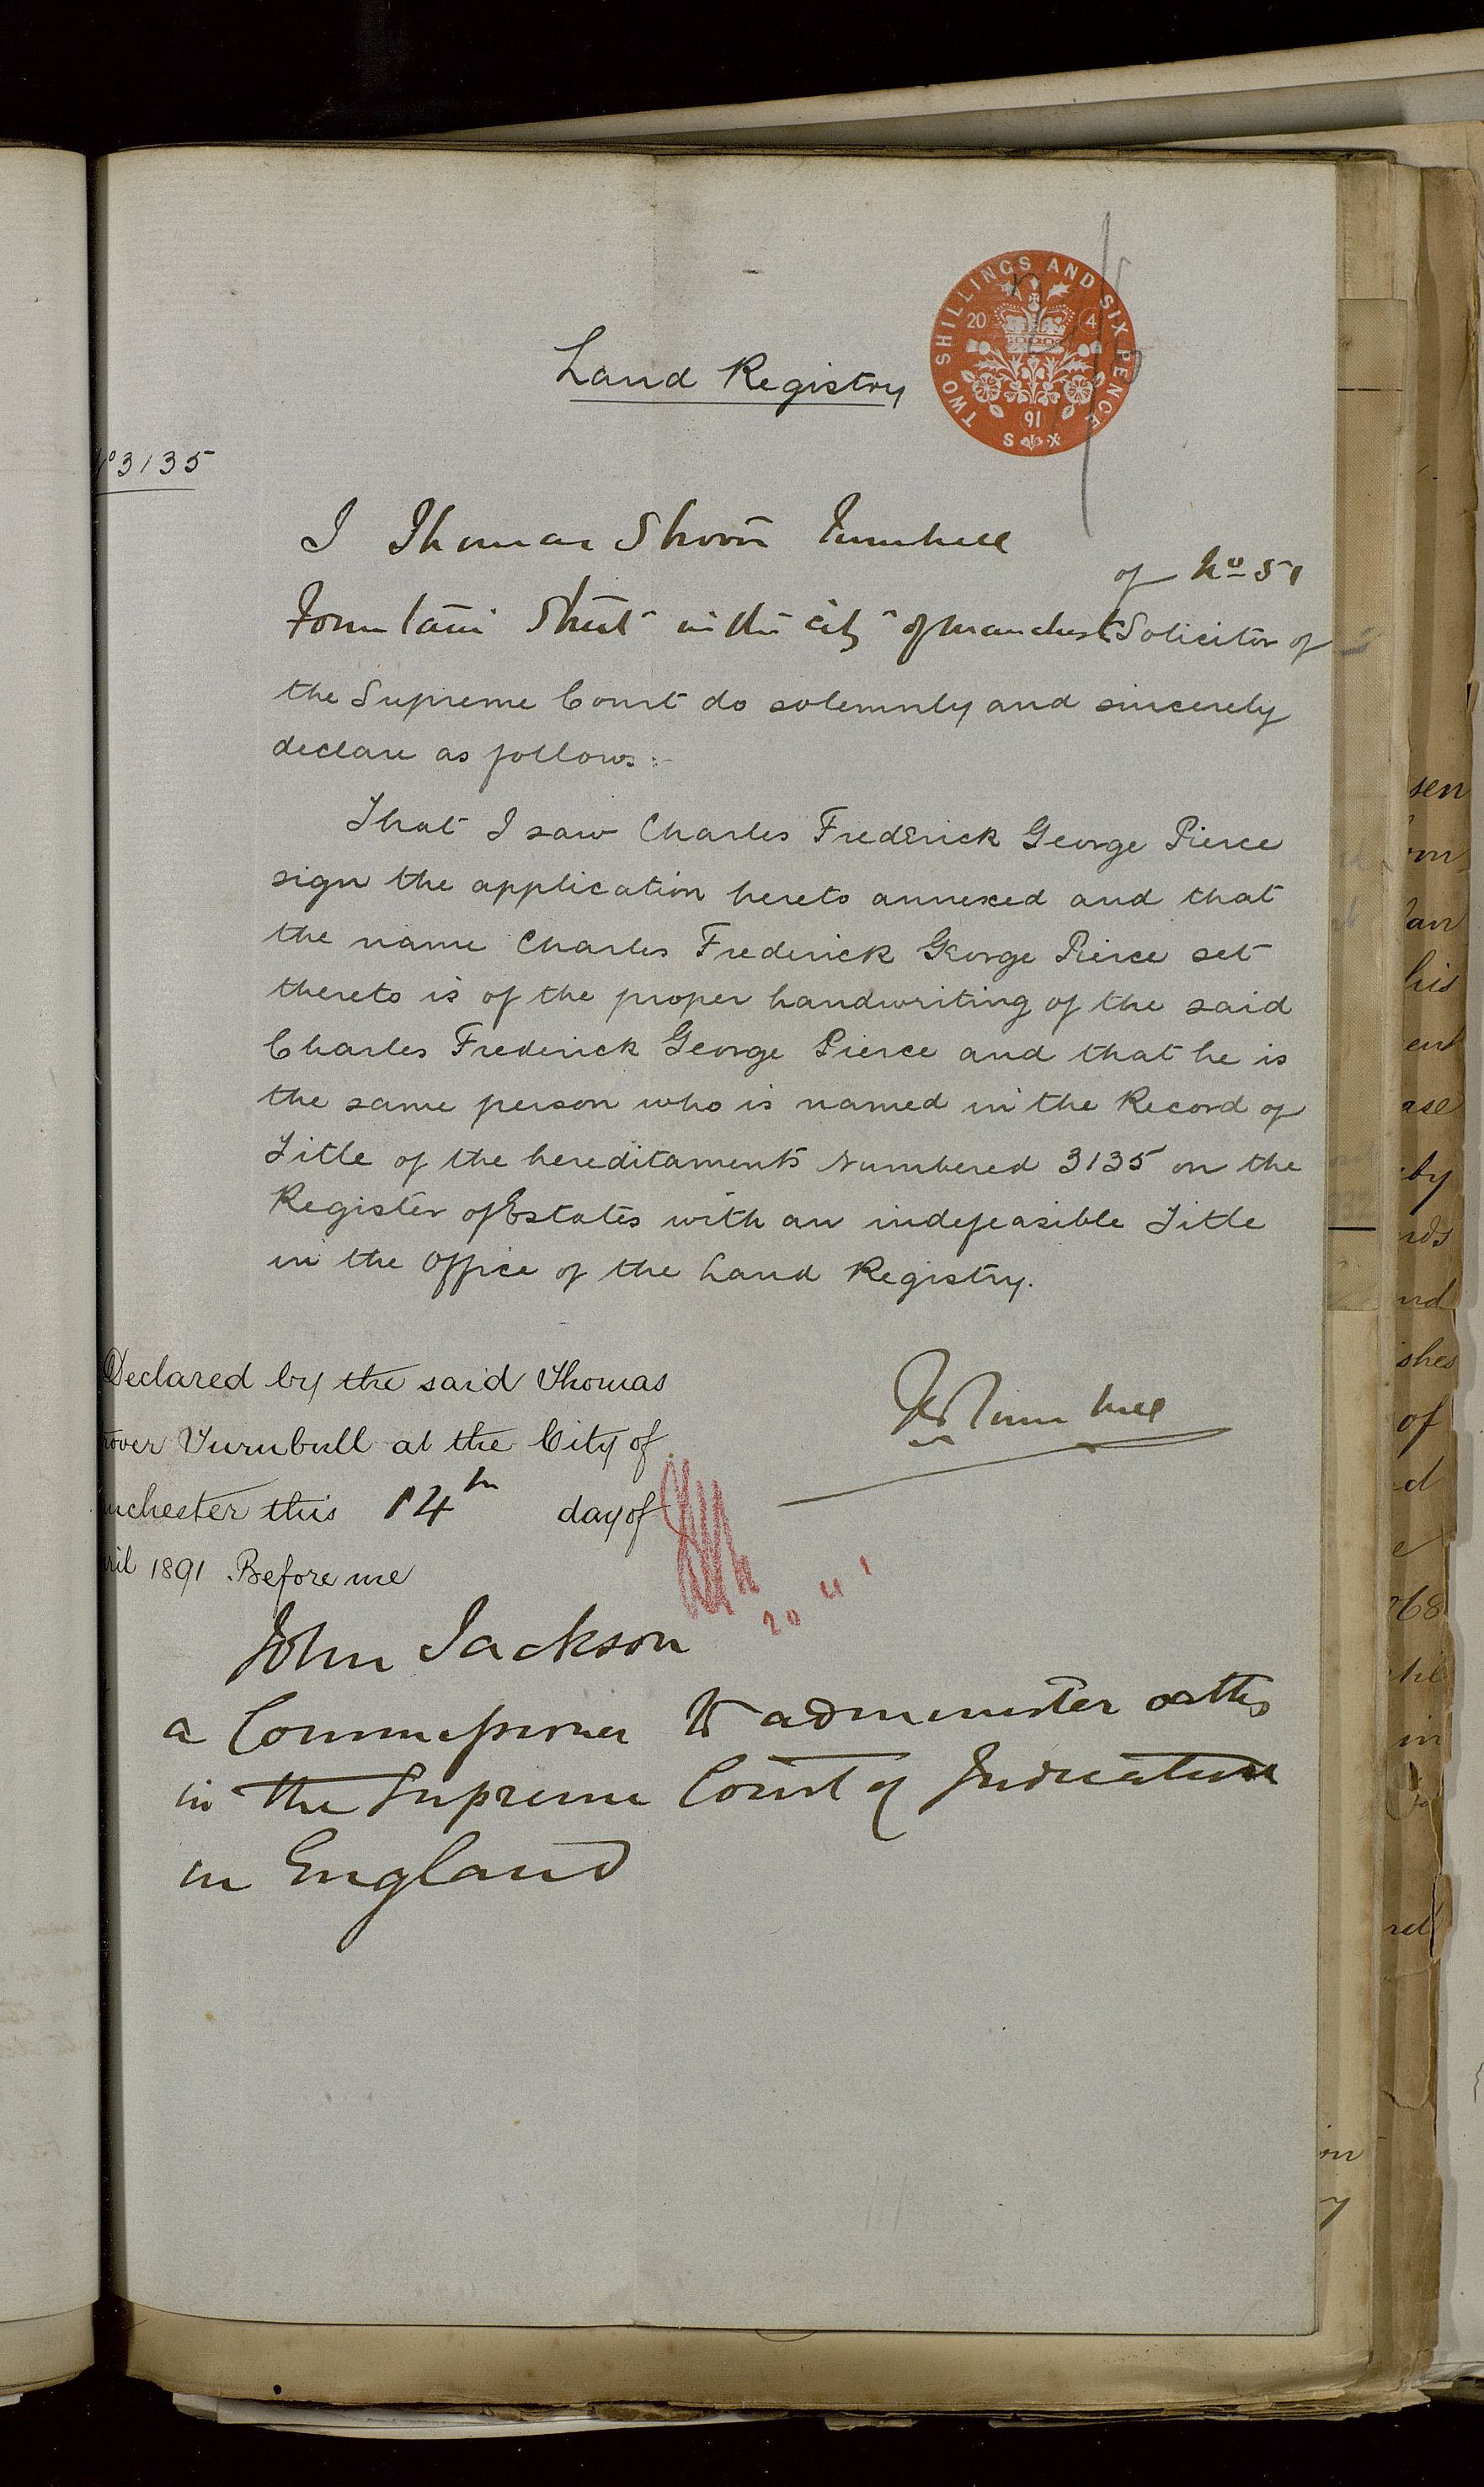 TWO SHILLINGS AND SIX PENCE
20 4
91
S X
Land Registry
No 3135
I Thomas Strover Turnbull
of No 51
Fountain Street in the city of Manchester Solicitor of
the Supreme Court do solemnly and sincerely
declare as follows:-
That I saw Charles Frederick George Pierce
sign the application hereto annexed and that
the name Charles Frederick George Pierce set
thereto is of the proper handwriting of the said
Charles Frederick George Pierce and that he is
the same person who is named in the Record of
Title of the hereditaments Numbered 3135 on the
Register of Estates with an indefeasible Title
in the Office of the Land Registry.
Declared by the said Thomas
rover Turnbull at the City of
nchester this 14th day of
ril 1891 Before me
T S Turnbull
20 4 1
John Jackson
a Commissioner to administer oaths
in the Supreme Court of Judicature
in England
sen
his
ase
by
nd
shes
of
d
68
in